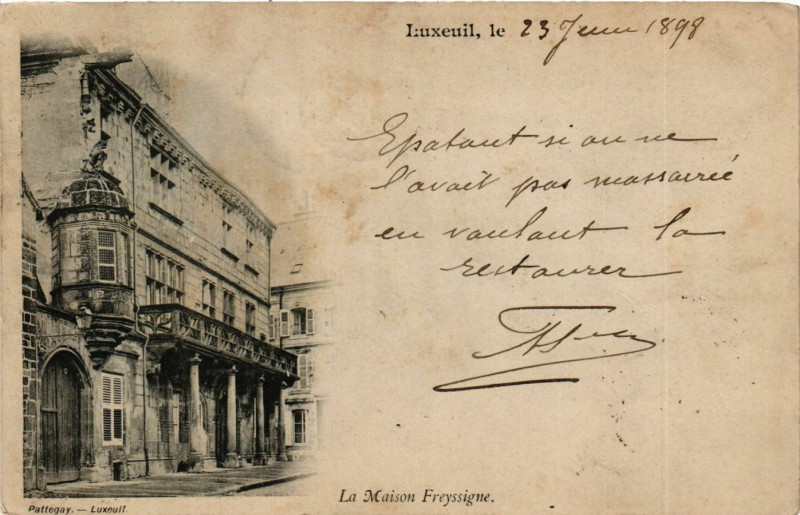 Luxeuil, le 23 Juin 1898
Epatant si on ne
l'avait pas massacrée
en voulant la
restaurer
La Maison Freyssigne.
Pattegay. — Luxeuil.